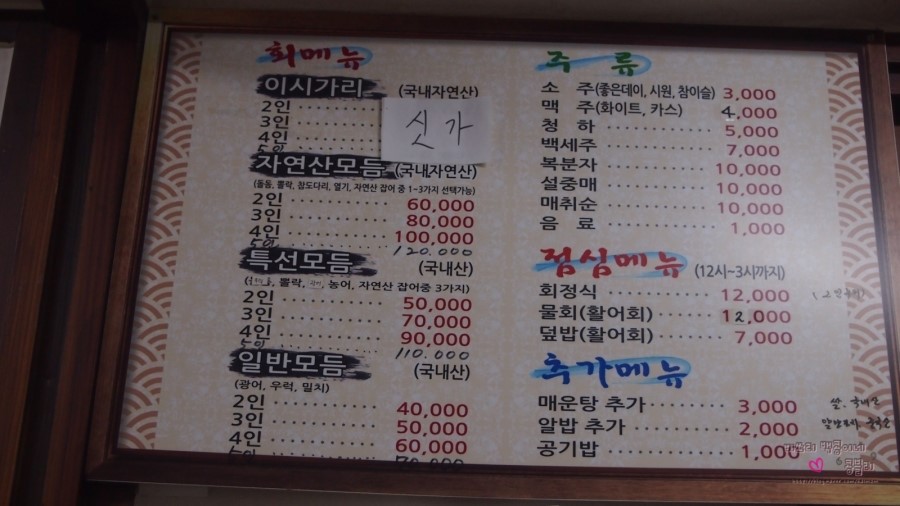 회메뉴
이시가리 (국내자연산)
2인
3인
4인
싯가
자연산모듬 (국내자연산)
(돌돔, 뽈락, 참도다리, 열기, 자연산 잡어 중 1~3가지 선택가능)
2인 60,000
3인 80,000
4인 100,000
5인 120.000
특선모듬 (국내산)
뽈락, 농어, 자연산 잡어중 3가지)
2인 50,000
3인 70,000
4인 90,000
5인 110.000
일반모듬 (국내산)
(광어, 우럭, 밀치)
2인 40,000
3인 50,000
4인 60,000
5인 70,000
주 류
소 주(좋은데이, 시원, 참이슬) 3,000
맥 주(화이트, 카스) 4,000
청 하 5,000
백세주 7,000
복분자 10,000
설중매 10,000
매취순 10,000
음 료 1,000
점심메뉴 (12시~3시까지)
회정식 12,000
물회(활어회) 12,000
덮밥(활어회) 7,000
추가메뉴
매운탕 추가 3,000
알밥 추가 2,000
공기밥 1,000
쌀, 국내산